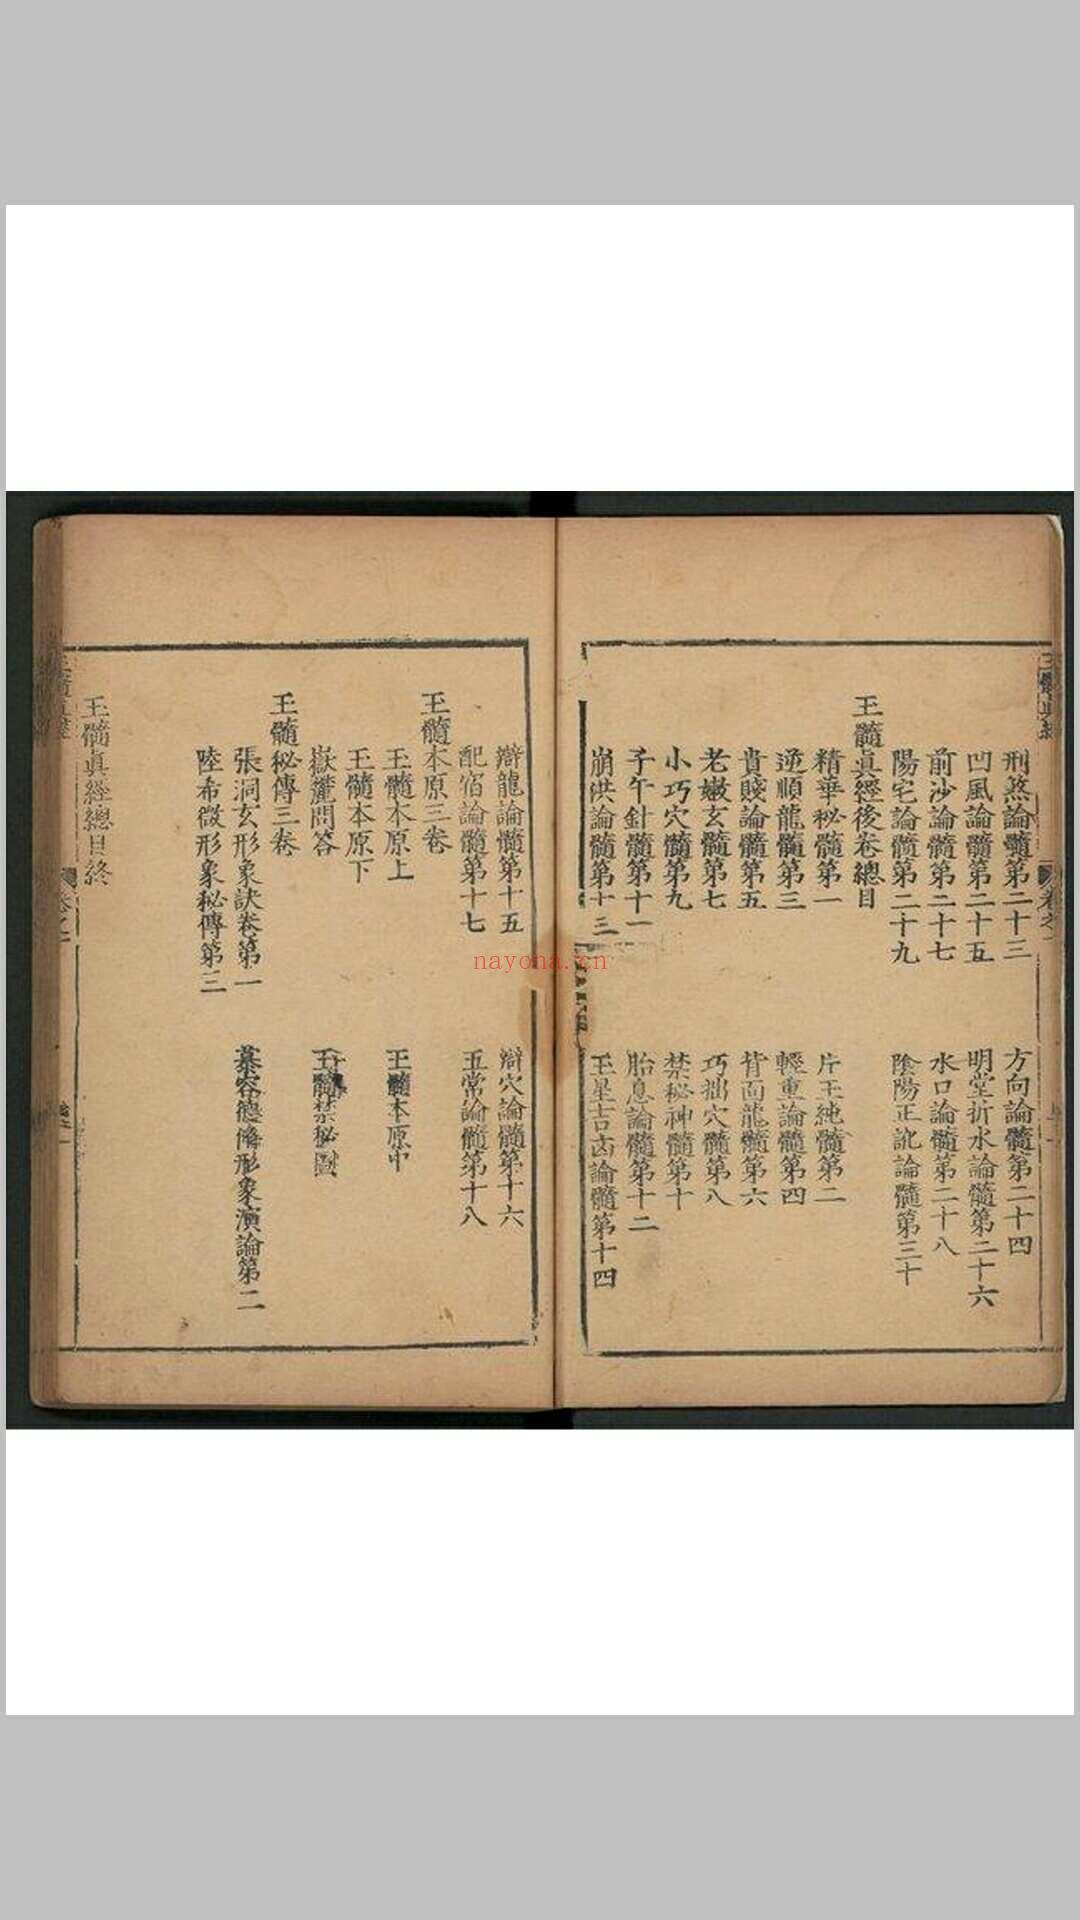 刑煞論髓第二十三　方向論髓第二十四
凹風論髓第二十五　明堂折水論髓第二十六
前沙論髓第二十七　水口論髓第二十八
陽宅論髓第二十九　陰陽正訛論髓第三十
玉髓眞經後卷總目
精華秘髓第一　片玉純髓第二
逆順龍髓第三　輕重論髓第四
貴賤論髓第五　背面龍髓第六
老嫩玄髓第七　巧拙穴髓第八
小巧穴髓第九　禁秘神髓第十
子午針髓第十一　胎息論髓第十二
崩洪論髓第十三　玉星吉凶論髓第十四
辯龍論髓第十五　辯穴論髓第十六
配宿論髓第十七　五常論髓第十八
玉髓本原三卷
玉髓本原上　玉髓本原中
玉髓本原下
嶽麓問答　玉髓禁秘圖
玉髓秘傳三卷
張洞玄形象訣卷第一　慕容德隆形象演論第二
陸希微形象秘傳第三
玉髓眞經總目終
nayona.cn